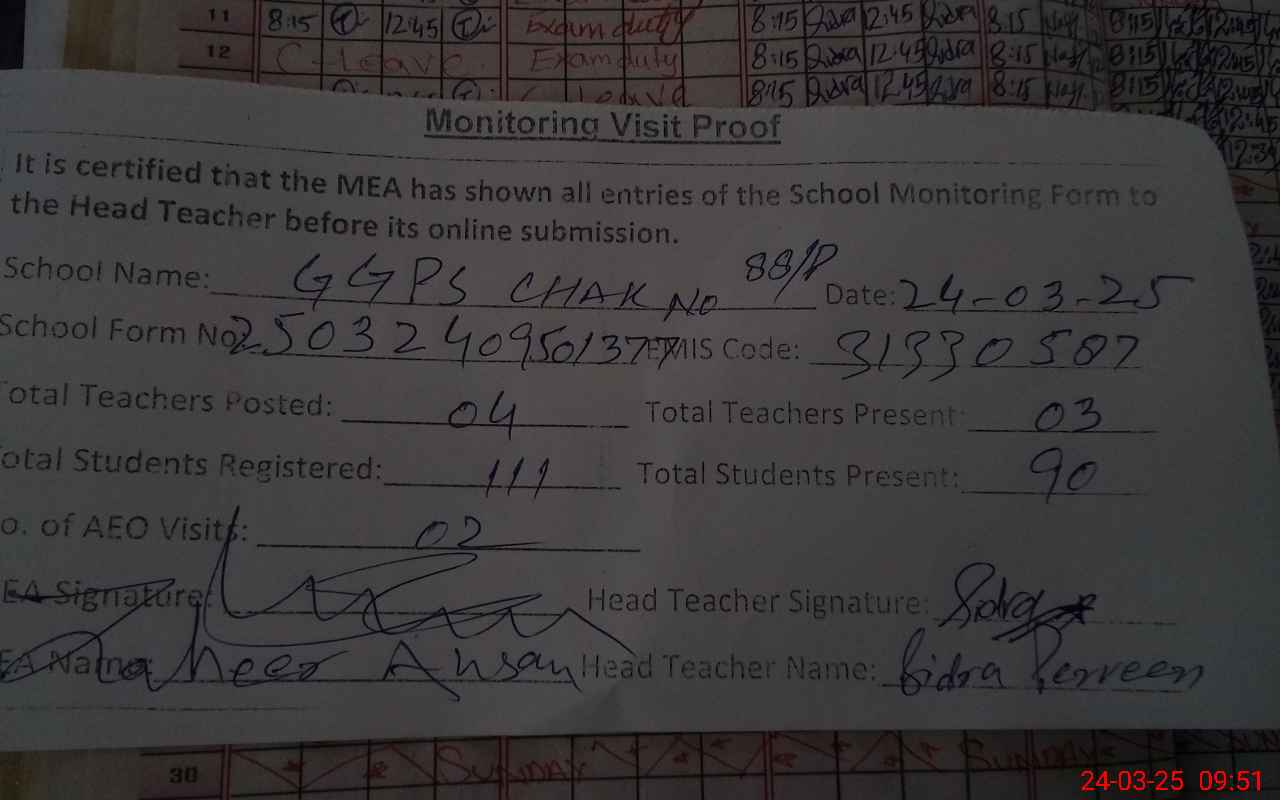 11 8:15 12:45 Exam duty 8:15 Sidra 12:45 Sidra 8:15 8:15 12:45
12 C-leave Exam duty 8:15 Sidra 12:45 Sidra 8:15 8:15 12:45
C leave 8:15 Sidra 12:45 Sidra 8:15 8:15 12:45
Monitoring Visit Proof
It is certified that the MEA has shown all entries of the School Monitoring Form to
the Head Teacher before its online submission.
School Name: GGPS CHAK NO 88/P Date: 24-03-25
School Form No 2503240950137 EMIS Code: 31330587
otal Teachers Posted: 04 Total Teachers Present: 03
otal Students Registered: 111 Total Students Present: 90
o. of AEO Visits: 02
EA Signature: Head Teacher Signature: Sidra
EA Name: Ahsan Head Teacher Name: Sidra Perveen
30 SUNDAY SUNDAY
24-03-25 09:51